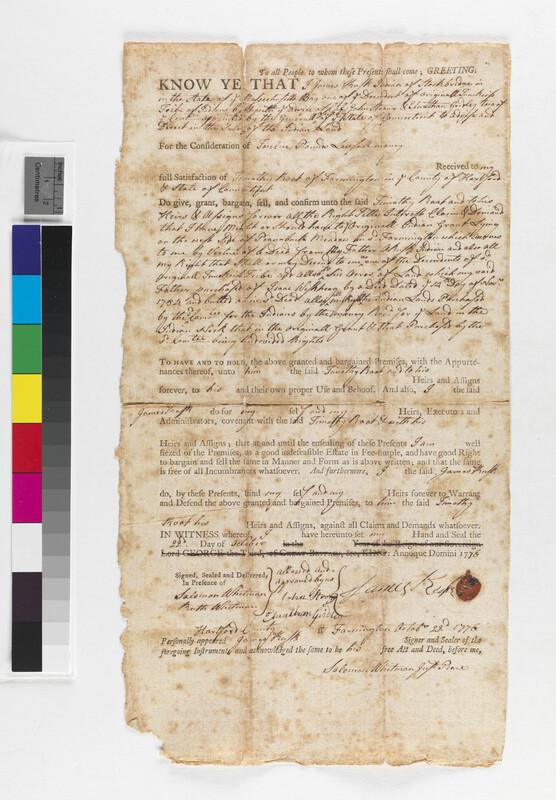 To all People to whom these Presents shall come; GREETING.
KNOW YE THAT I James Rusk Indian of Stockbridge in
in the State of ye Massachusetts Bay one of ye Decendents of originall Tunkxis
Tribe of Indians by &c of John Strong & Elnathan Gridley two of
ye appointed by the General of ye State of Connecticut to advise and
Direct in the Sale of the Indian Land
For the Consideration of Twelve Pounds Lawfull money
Received to my
full Satisfaction of Timothy Root of Farmington in ye County of Hartford
& State of Connecticut
Do give, grant, bargain, sell, and confirm unto the said Timothy Root and to his
Heirs & Assigns forever all the Right Title Interest Claim & Demand
that I have Might or Should have to ye Originall Indian Grant Lying
on the west Side of Meadow in sd Farmington which
to me by Virtue of a Deed from My Father Indian and also all
my Right that is to me as one of the Decendents of ye
originall Tribe of Land which my said
Father purchased of Isaac by a Deed dated ye 14th Day of
1754 and butted as in sd Deed Indian Lands Purchased
by the for the Indians by the money Paid for ye Land in the
Indian Neck that in the originall Grant & that Purchased by the
sd being Undevided Rights
TO HAVE AND TO HOLD, the above granted and bargained Premises, with the Appurte-
nances thereof, unto him the said Timothy Root and to his
Heirs and Assigns
forever, to his and their own proper Use and Behoof. And also, I the said
James Rusk do for my self and my Heirs, Executors and
Administrators, covenant with the said Timothy Root & with his
Heirs and Assigns; that at and until the ensealing of these Presents I am well
siezed of the Premises, as a good indefeasible Estate in Fee-simple, and have good Right
to bargain and sell the same in Manner and Form as is above written; and that the same
is free of all Incumbrances whatsoever. And furthermore, I the said James Rusk
do, by these Presents, bind my self and my Heirs forever to Warrant
and Defend the above granted and bargained Premises, to him the said Timothy
Root his Heirs and Assigns, against all Claims and Demands whatsoever.
IN WITNESS whereof, I have hereunto set my Hand and Seal the
22d Day of October in the Year of the Reign of our Sovereign
Lord GEORGE the Third, of GREAT BRITAIN, &c, KING: Annoque Domini 1776
Signed, Sealed and Delivered,
In Presence of
Solomon Whitman
Ruth Whitman
allowed and
approved by us
John Strong
Elnathan Gridley
James Rusk
Hartford County ss Farmington Octobr 22d 1776
Personally appeared James Rusk Signer and Sealer of the
foregoing Instrument, and acknowledged the same to be his free Act and Deed, before me,
Solomon Whitman Just Peace